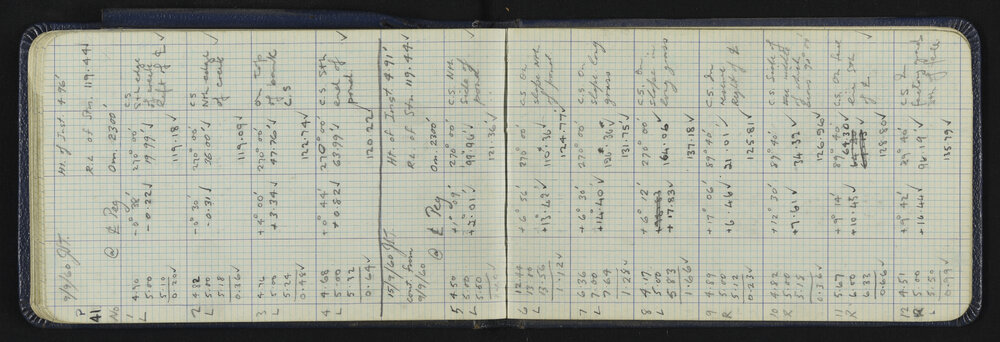 P 41
9/9/60 JJT.
Ht. of Inst 4.96'
No @ ₵ Peg Om 2300' R.L of Stn. 119.44
1 L 4.90 5.00 5.10 0.20✓ -0° 38' -0.22✓ 270° 00' 19.99✓ 119.18✓ C.S Sth edge of creek left of ₵ ✓
2 L 4.82 5.00 5.18 0.36✓ -0° 30' -0.31✓ 270° 00' 36.00✓ 119.09✓ C.S Nth edge of creek ✓
3 L 4.76 5.00 5.24 0.48✓ +4° 00' +3.34✓ 270° 00' 47.76✓ 122.74✓ On top of bank C.S ✓
4 L 4.68 5.00 5.32 0.64✓ +0° 44' +0.82✓ 270° 00' 63.99✓ 120.22✓ C.S. Sth end of pond. ✓
15/9/60 JJT.
cont. from 9/9/60
Ht. of Inst. 4.91'
R.L of Stn 119.44
@ ₵ Peg Om 2300'
5 L 4.50 5.00 5.50 +1° 09' +2.01✓ 270° 00' 99.96✓ 121.36✓ C.S. Nth side of pond. ✓
6 L 12.44 13.00 13.56 1.12✓ +6° 56' +13.42✓ 270° 00' 110.36✓ 124.77✓ C.S On slope Nth of pond ✓
7 L 6.36 7.00 7.64 1.28✓ +6° 30' +14.40✓ 270° 00' 131.75✓ C.S. On slope long grass ✓
8 L 4.17 5.00 5.83 1.66✓ +6° 12' +17.83✓ 270° 00' 164.06✓ 137.18✓ C.S. On slope in long grass ✓
9 R 4.89 5.00 5.12 0.23✓ +17° 06' +6.46✓ 89° 40' 21.01✓ 125.81✓ C.S. In reserve Right of ₵ ✓
10 R 4.82 5.00 5.18 0.36✓ +12° 30' +7.61✓ 89° 40' 34.32✓ 126.96✓ C.S. Side of
11 R 5.67 6.00 6.33 0.66✓ +9° 14' +10.45✓ 89° 40' 64.30✓ 128.80✓ C.S. On fence line Sth of ₵ ✓
12 R 4.51 5.00 5.50 0.99✓ +9° 42' +16.44✓ 96.19✓ 135.79✓ C.S In factory yard Sth of fence